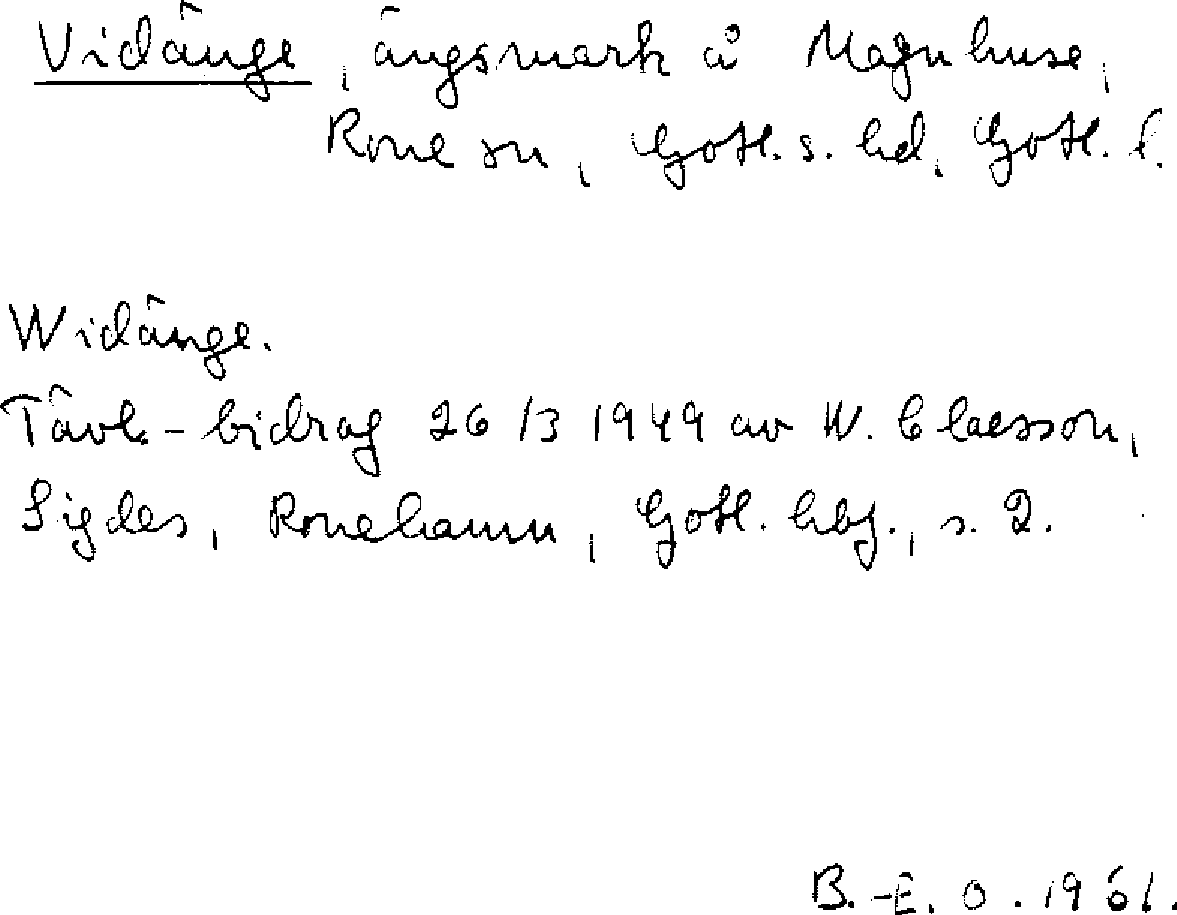 Vidänge, ängsmark å Magnhuse,
Rone sn, Gotl. s. hd, Gotl. l.
Widänge.
Tävl.-bidrag 26/3 1949 av W. Claesson,
Sigdes, Ronehamn, Gotl. hbf., s. 2.
B.-E. O. 1961.